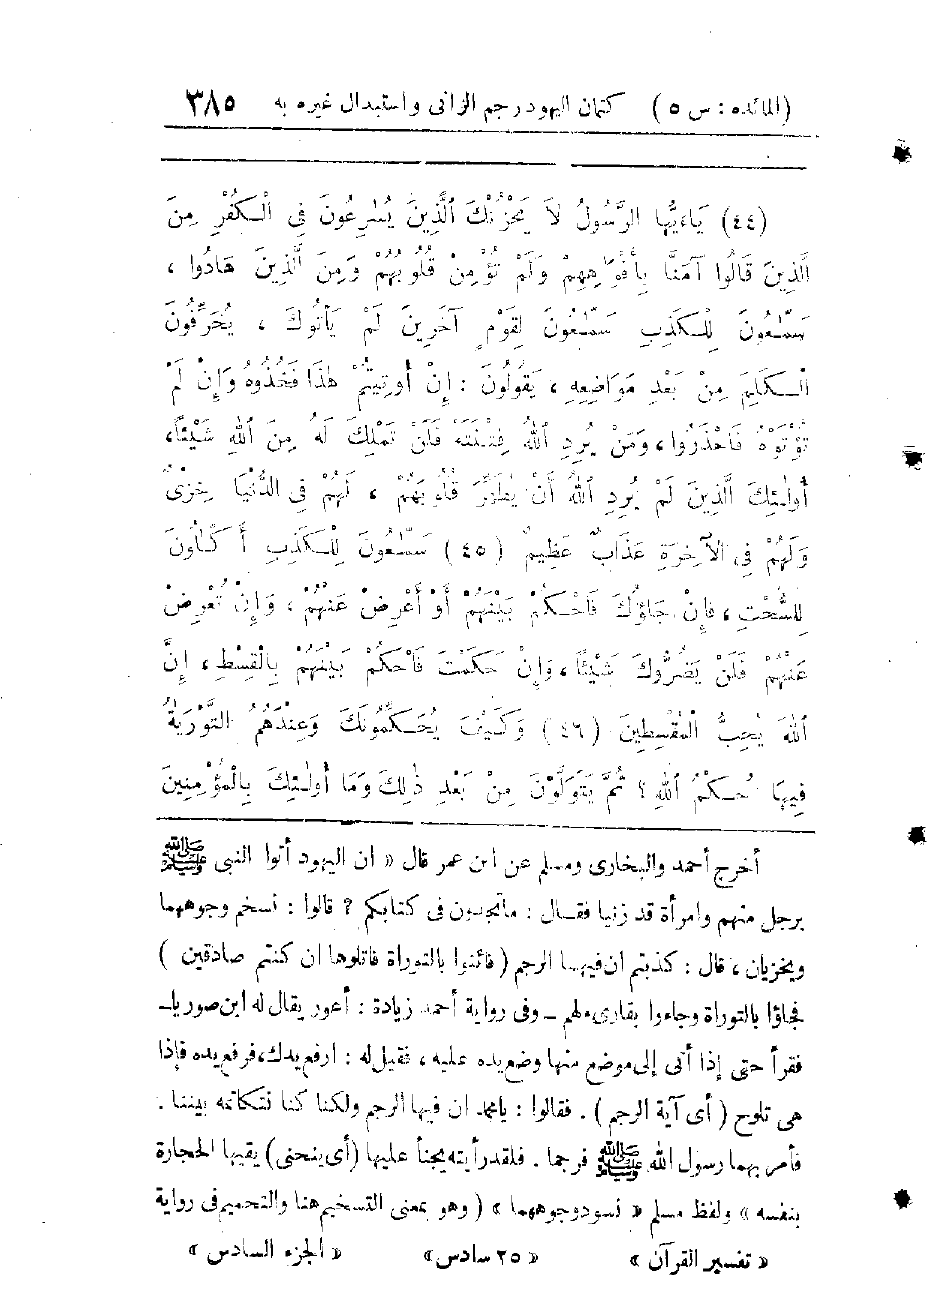 (المائده : س ٥) كتمان اليهود رجم الزانى واستبدال غيره به ٣٨٥
(٤٤) يَاءَيُّهَا الرَّسُولُ لاَ يَحْزُنْكَ الَّذِينَ يُسَٰرِعُونَ فِى الْكُفْرِ مِنَ
الَّذِينَ قَالُوا آمَنَّا بِأَفْوَٰهِهِمْ وَلَمْ تُؤْمِنْ قُلُوبُهُمْ وَمِنَ الَّذِينَ هَادُوا ،
سَمَّٰعُونَ لِلْكَذِبِ سَمَّٰعُونَ لِقَوْمٍ آخَرِينَ لَمْ يَأْتُوكَ ، يُحَرِّفُونَ
الْكَلِمَ مِنْ بَعْدِ مَوَاضِعِهِ ، يَقُولُونَ : إِنْ أُوتِيتُمْ هٰذَا فَخُذُوهُ وَإِنْ لَمْ
تُؤْتَوْهُ فَاحْذَرُوا ، وَمَنْ يُرِدِ اللهُ فِتْنَتَهُ فَلَنْ تَمْلِكَ لَهُ مِنَ اللهِ شَيْئًا ،
أُولٰئِكَ الَّذِينَ لَمْ يُرِدِ اللهُ أَنْ يُطَهِّرَ قُلُوبَهُمْ ، لَهُمْ فِى الدُّنْيَا خِزْىٌ
وَلَهُمْ فِى الآخِرَةِ عَذَابٌ عَظِيمٌ (٤٥) سَمَّٰعُونَ لِلْكَذِبِ أَكَّٰلُونَ
لِلسُّحْتِ ، فَإِنْ جَاؤُكَ فَاحْكُمْ بَيْنَهُمْ أَوْ أَعْرِضْ عَنْهُمْ ، وَإِنْ تُعْرِضْ
عَنْهُمْ فَلَنْ يَضُرُّوكَ شَيْئًا ، وَإِنْ حَكَمْتَ فَاحْكُمْ بَيْنَهُمْ بِالْقِسْطِ ، إِنَّ
اللهَ يُحِبُّ الْمُقْسِطِينَ (٤٦) وَكَيْفَ يُحَكِّمُونَكَ وَعِنْدَهُمُ التَّوْرَيٰةُ
فِيهَا حُكْمُ اللهِ ؟ ثُمَّ يَتَوَلَّوْنَ مِنْ بَعْدِ ذٰلِكَ وَمَا أُولٰئِكَ بِالْمُؤْمِنِينَ
أخرج أحمد والبخارى ومسلم عن ابن عمر قال « ان اليهود أتوا النبى ﷺ
برجل منهم وامرأة قد زنيا فقال : ما تجدون فى كتابكم ؟ قالوا : نسخم وجوههما
ويخزيان ، قال : كذبتم ان فيها الرجم ( فائتوا بالتوراة فاتلوها ان كنتم صادقين )
فجاؤا بالتوراة وجاءوا بقارىء لهم ــ وفى رواية أحمد زيادة : أعور يقال له ابن صوريا ــ
فقرأ حتى إذا أتى إلى موضع منها وضع يده عليه ، فقيل له : ارفع يدك ، فرفع يده فإذا
هى تلوح ( أى آية الرجم ) . فقالوا : يا محمد ان فيها الرجم ولكنا كنا نتكاتمه بيننا .
فأمر بهما رسول الله ﷺ فرجما . فلقد رأيته يجنأ عليها (أى ينحنى) يقيها الحجارة
بنفسه » ولفظ مسلم « نسود وجوههما » ( وهو بمعنى التسخيم هنا والتحميم فى رواية
« تفسير القرآن » « ٢٥ سادس » « الجزء السادس »